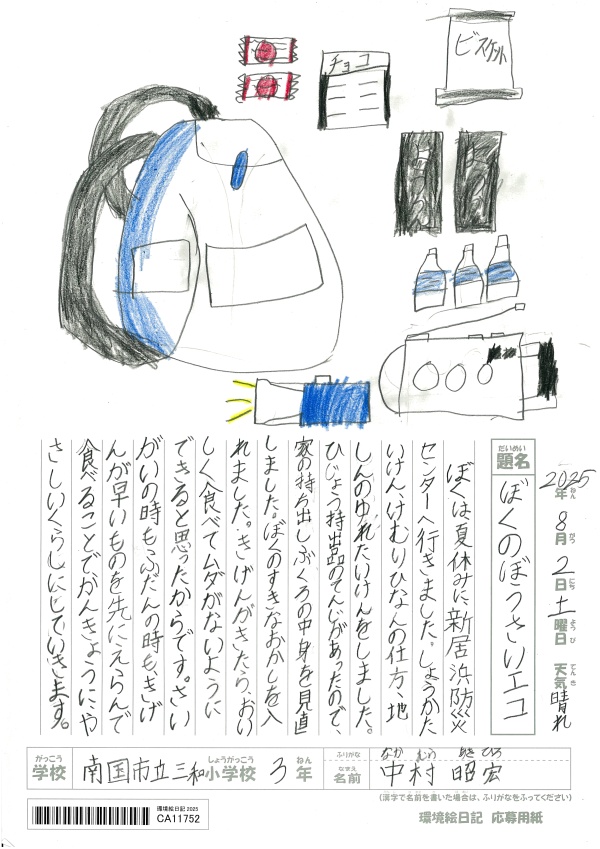 チョコ
ビスケット
2025年8月2日土曜日 天気晴れ
ねん がつ にち ようび てんき
だいめい
題名
ぼくのぼうさいエコ
ぼくは夏休みに、新居浜防災
センターへ行きました。しょうかた
いけん、けむりひなんの仕方、地
しんのゆれたいけんをしました。
ひじょう持出品のてんじがあったので、
家の持ち出しぶくろの中身を見直
しました。ぼくのすきなおかしを入
れました。きげんがきたら、おい
しく食べてムダがないように
できると思ったからです。さい
がいの時も、ふだんの時も、きげ
んが早いものを先にえらんで
食べることでかんきょうに、や
さしいくらしにしていきます。
がっこう
学校
南国市立三和小学校 3年
しょうがっこう ねん
ふりがな
なか むら あき ひろ
なまえ
名前
中村 昭宏
(漢字で名前を書いた場合は、ふりがなをふってください)
環境絵日記 2025
CA11752
環境絵日記 応募用紙